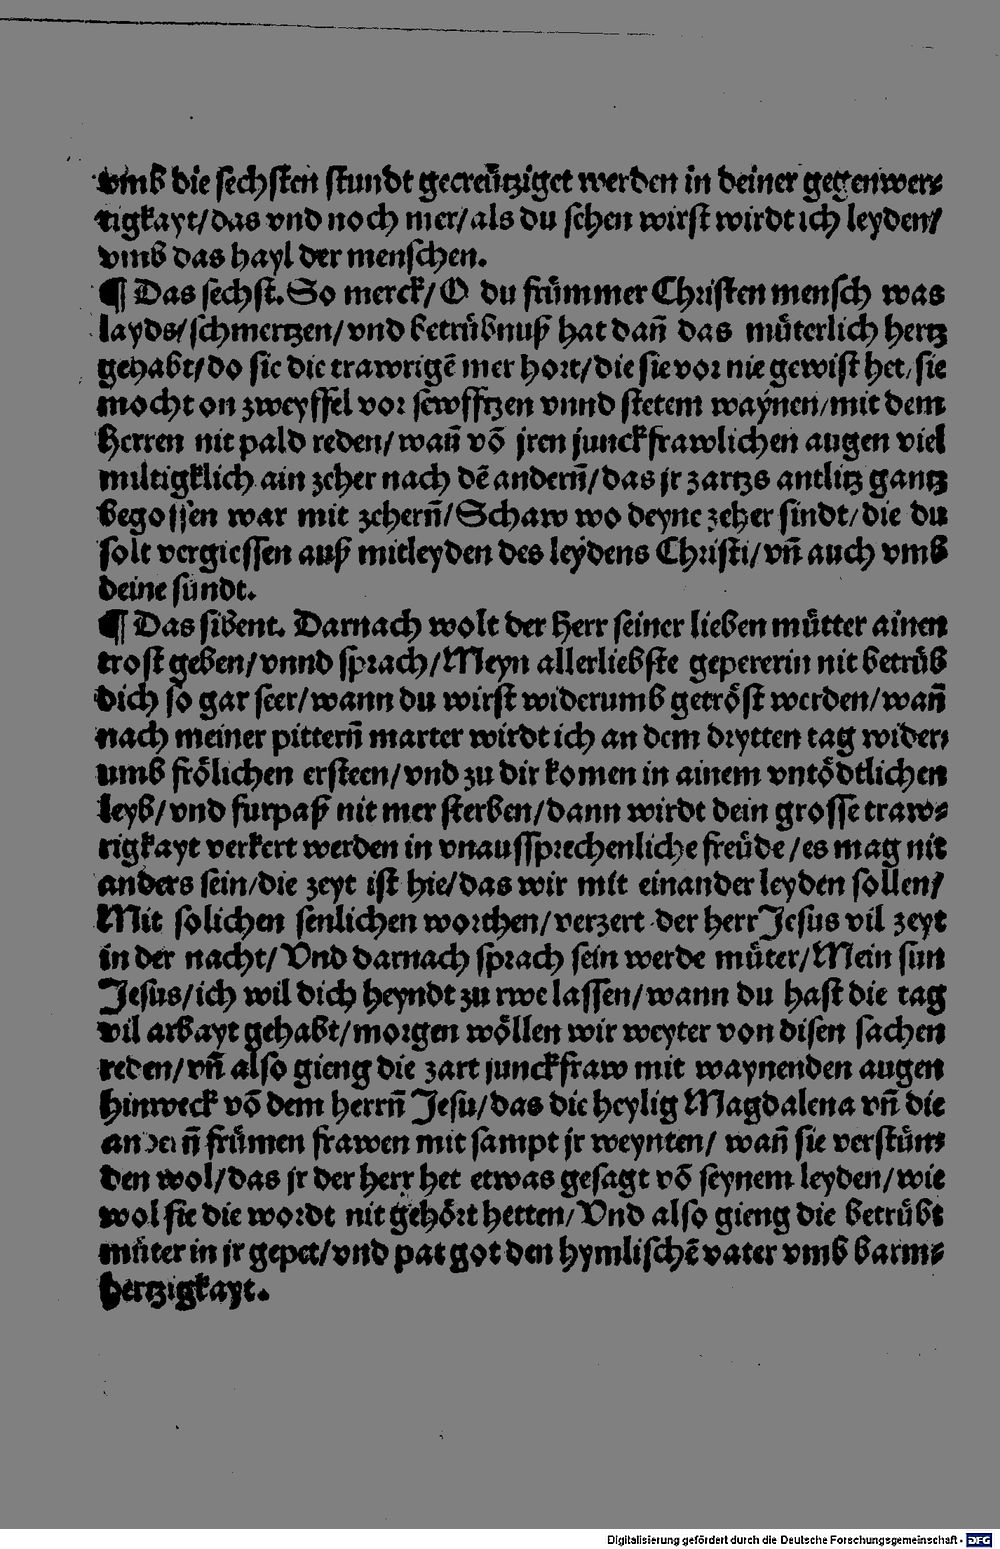 vmb die sechsten stundt gecreütziget werden in deiner gegenwer⸗
tigkayt/das vnd noch mer/als du sehen wirst wirdt ich leyden/
vmb das hayl der menschen.
¶ Das sechst. So merck/O du frümmer Christen mensch was
layds/schmertzen/vnd betrübnuß hat dañ das müterlich hertz
gehabt/do sie die trawrigē mer hort/die sie vor nie gewist het/sie
mocht on zweyffel vor sewfftzen vnnd stetem waynen/mit dem
Herren nit pald reden/wañ võ jren junckfrawlichen augen viel
miltigklich ain zeher nach dē anderñ/das jr zartzs antlitz gantz
begossen war mit zeherñ/Schaw wo deyne zeher sindt/die du
solt vergiessen auß mitleyden des leydens Christi/vñ auch vmb
deine sündt.
¶ Das sibent. Darnach wolt der Herr seiner lieben mütter ainen
trost geben/vnnd sprach/Meyn allerliebste gepererin nit betrüb
dich so gar seer/wann du wirst widerumb getröst werden/wañ
nach meiner pitterñ marter wirdt ich an dem drytten tag wider⸗
umb frölichen ersteen/vnd zu dir komen in ainem vntödtlichen
leyb/vnd furpaß nit mer sterben/dann wirdt dein grosse traw⸗
rigkayt verkert werden in vnaussprechenliche freüde/es mag nit
anders sein/die zeyt ist hie/das wir mit einander leyden sollen/
Mit solichen senlichen worthen/verzert der herr Jesus vil zeyt
in der nacht/Vnd darnach sprach sein werde müter/Mein sun
Jesus/ich wil dich heyndt zu rwe lassen/wann du hast die tag
vil arbayt gehabt/morgen wöllen wir weyter von disen sachen
reden/vñ also gieng die zart junckfraw mit waynenden augen
hinweck võ dem herrñ Jesu/das die heylig Magdalena vñ die
anderñ frümen frawen mit sampt jr weynten/ wañ sie verstün⸗
den wol/das jr der herr het etwas gesagt võ seynem leyden/wie
wol sie die wordt nit gehört hetten/Vnd also gieng die betrübt
müter in jr gepet/vnd pat got den hymlischē vater vmb barm⸗
hertzigkayt.
Digitalisierung gefördert durch die Deutsche Forschungsgemeinschaft - DFG